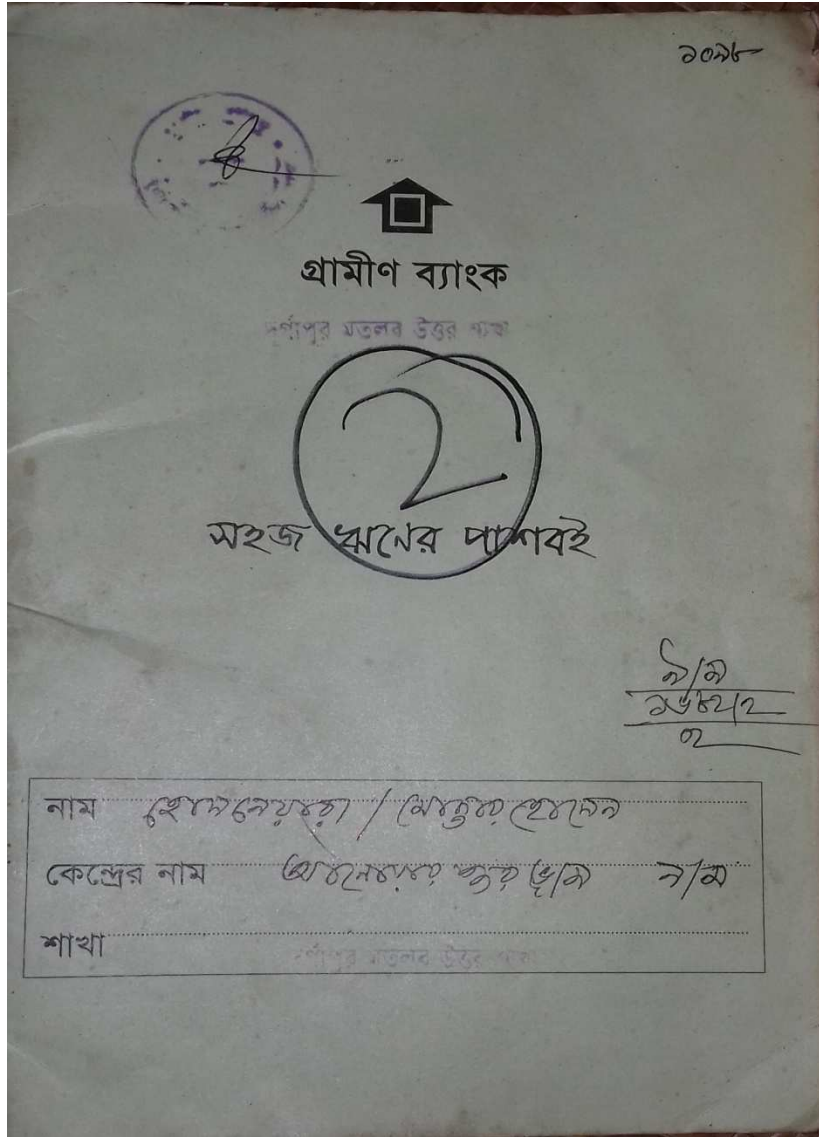 ১০৯৮
গ্রামীণ ব্যাংক
দূর্গাপুর মতলব উত্তর শাখা
2
সহজ ঋনের পাশবই
৯/ম
২
নাম হোসনেয়ারা / মোক্তার হোসেন
কেন্দ্রের নাম ৯/ম
শাখা দূর্গাপুর মতলব উত্তর শাখা